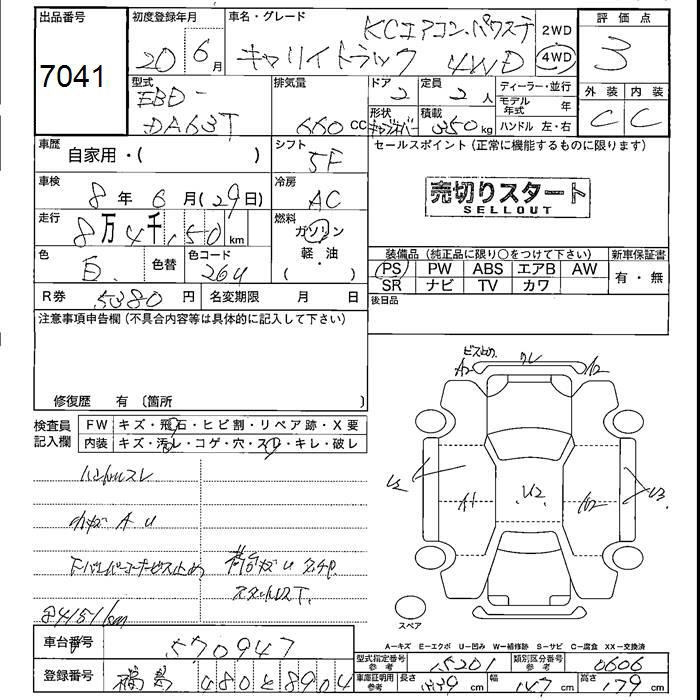 出品番号
7041
初度登録年月
20 6月
車名・グレード
KCエアコン、パワステ
キャリイトラック 4WD
2WD
4WD
評価点
3
外装 内装
C C
型式
EBD-
DA63T
排気量
660cc
ドア
2
定員
2人
形状
積載
350kg
ディーラー・並行
モデル年式 年
ハンドル 左・右
車歴
自家用・( )
シフト
5F
セールスポイント (正常に機能するものに限ります)
車検
8年 6月(29日)
冷房
AC
売切りスタート
SELLOUT
走行
8万4千,150km
燃料
ガソリン
軽・油
( )
色
白.
色替
色コード
26U
装備品 (純正品に限り○をつけて下さい)
新車保証書
PS PW ABS エアB AW
SR ナビ TV カワ
有・無
R券 5380円
名変期限 月 日
後日品
注意事項申告欄 (不具合内容等は具体的に記入して下さい)
修復歴 有 〔箇所 〕
検査員記入欄
FW キズ・飛石・ヒビ割・リペア跡・X要
内装 キズ・汚レ・コゲ・穴・スレ・キレ・破レ
ハンドルスレ
A U
84151km
ビス止め ワレ
A2 A2
U2 A1 U2 A2 U3
スペア
A-キズ E-エクボ U-凹み W-補修跡 S-サビ C-腐食 XX-交換済
車台番号
570947
登録番号
福島 480と8904
型式指定番号 参考
15201
類別区分番号 参考
0606
車庫証明用 参考
長さ 339cm
幅 147cm
高さ 179cm